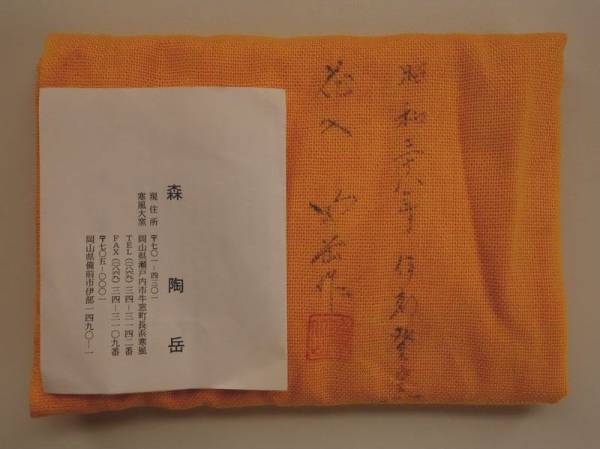 昭和 八年 伊部登窯
花入 陶岳作
森 陶岳
現住所 〒七〇一-四三〇一
寒風大窯 岡山県瀬戸内市牛窓町長浜寒風
TEL(〇八六九)三四-三一四二番
FAX(〇八六九)三四-三一〇九番
〒七〇五-〇〇〇一
岡山県備前市伊部一四九〇-一